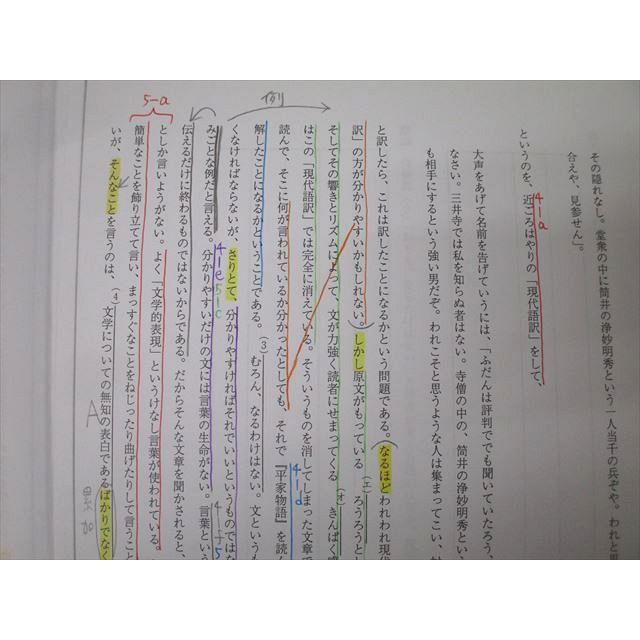 その隠れなし。堂衆の中に筒井の浄妙明秀という一人当千の兵ぞや。われと思
合えや、見参せん」。
というのを、近ごろはやりの「現代語訳」をして、
大声をあげて名前を告げていうには、「ふだんは評判ででも聞いていたろう、
なさい。三井寺では私を知らぬ者はない。寺僧の中の、筒井の浄妙明秀とい
も相手にするという強い男だぞ。われこそと思うような人は集まってこい、
と訳したら、これは訳したことになるかという問題である。なるほどわれわれ現
訳」の方が分かりやすいかもしれない。しかし原文がもっている(エ)ろうろうと
そしてその響きとリズムによって、文が力強く読者にせまってくる(オ)きんぱく
はこの「現代語訳」では完全に消えている。そういうものを消してしまった文章
読んで、そこに何が言われているか分かったとしても、それで『平家物語』を読
解したことになるかということである。(3)むろん、なるわけはない。文というも
くなければならないが、さりとて、分かりやすければそれでいいというものではな
みごとな例だと言える。分かりやすいだけの文には言葉の生命がない。言葉とい
伝えるだけに終わるものではないからである。だからそんな文章を聞かされると、
としか言いようがない。よく「文学的表現」というけなし言葉が使われている。
簡単なことを飾り立てて言い、まっすぐなことをねじったり曲げたりして言うこと
いが、そんなことを言うのは、(4)文学についての無知の表白であるばかりでなく
4-a
例
4-d
4-e
5-c
5-a
A
累加